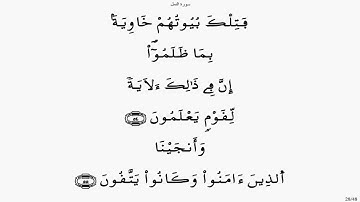 سورة النمل
فَتِلْكَ بُيُوتُهُمْ خَاوِيَةَۢ
بِمَا ظَلَمُوٓا۟ۖ
إِنَّ فِے ذَٰلِكَ ءَلَايَةٗ
لِّقَوْمٖ يَعْلَمُونَ
وَأَنجَيْنَا
اَ۬لذِينَ ءَامَنُوا۟ وَكَانُوا۟ يَتَّقُونَ